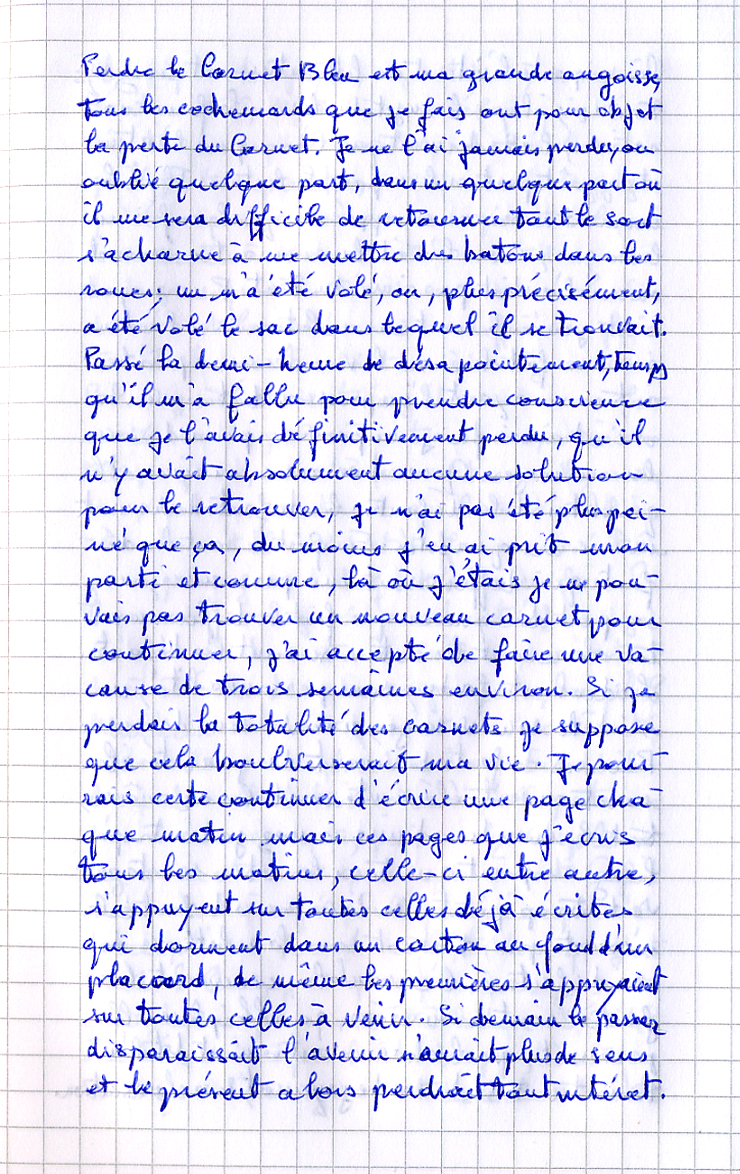 Perdre le Carnet Bleu est ma grande angoisse,
tous les cochemards que je fais ont pour objet
la perte du Carnet. Je ne l'ai jamais perdu, ou
oublié quelque part, dans un quelque part où
il me sera difficile de retourner tout le sort
s'acharne à me mettre des batons dans les
roues; on m'a été volé, ou, plus précisément,
a été volé le sac dans lequel il se trouvait.
Passé la demi-heure de désapointement, temps
qu'il m'a fallu pour prendre conscience
que je l'avais définitivement perdu, qu'il
n'y avait absolument aucune solution
pour le retrouver, je n'ai pas été plus pei-
né que ça, du moins j'en ai prit mon
parti et comme, là où j'étais je ne pou-
vais pas trouver un nouveau carnet pour
continuer, j'ai accepté de faire une va-
cance de trois semaines environ. Si je
perdais la totalité des carnets je suppose
que cela boulverserait ma vie. Je pour-
rais certe continuer d'écrire une page cha-
que matin mais ces pages que j'écris
tous les matins, celle-ci entre autre,
s'appuyent sur toutes celles déjà écrites
qui dorment dans un carton au fond d'un
placard, de même les premières s'appuyaient
sur toutes celles à venir. Si demain le passé
disparaissait l'avenir n'aurait plus de sens
et le présent alors perdrait tout intéret.